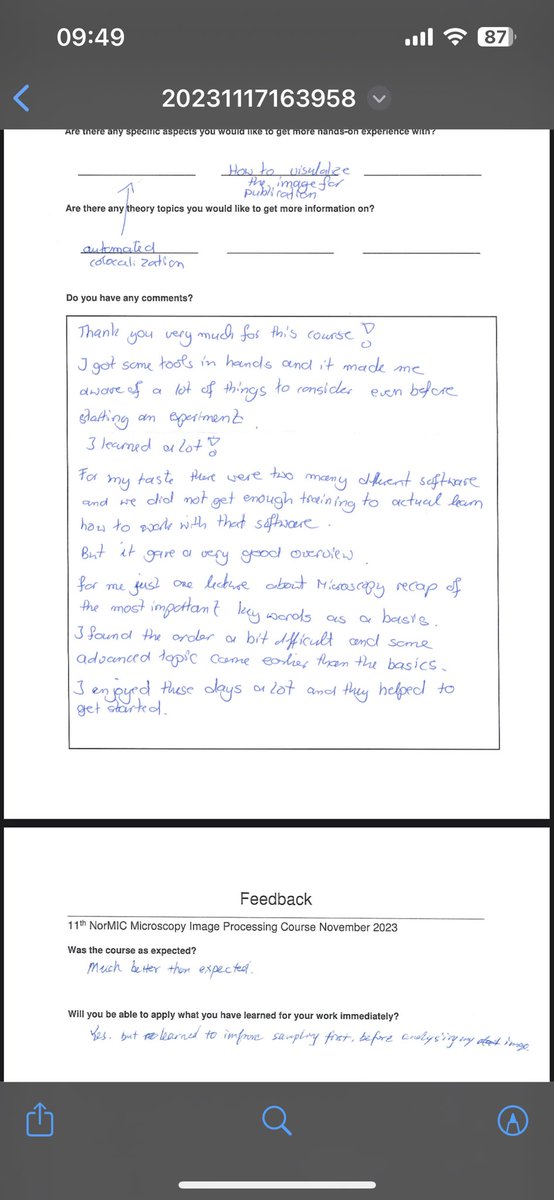 09:49
87
20231117163958
Are there any specific aspects you would like to get more hands-on experience with?
How to visulalize
the image for
publication
Are there any theory topics you would like to get more information on?
automated
colocalization
Do you have any comments?
Thank you very much for this course!
I got some tools in hands and it made me
aware of a lot of things to consider even before
statting an experiment.
I learned a lot!
For my taste there were two many diffuent software
and we did not get enough training to actual learn
how to work with that software.
But it gave a very good overview.
for me just one lecture about Microscopy recap of
the most important key words as a basis.
I found the order a bit difficult and some
advanced topic came earlier than the basics.
I enjoyed these days a lot and they helped to
get started.
Feedback
11th NorMIC Microscopy Image Processing Course November 2023
Was the course as expected?
Much better than expected.
Will you be able to apply what you have learned for your work immediately?
Yes. but learned to improve sampling first, before analysing my image.